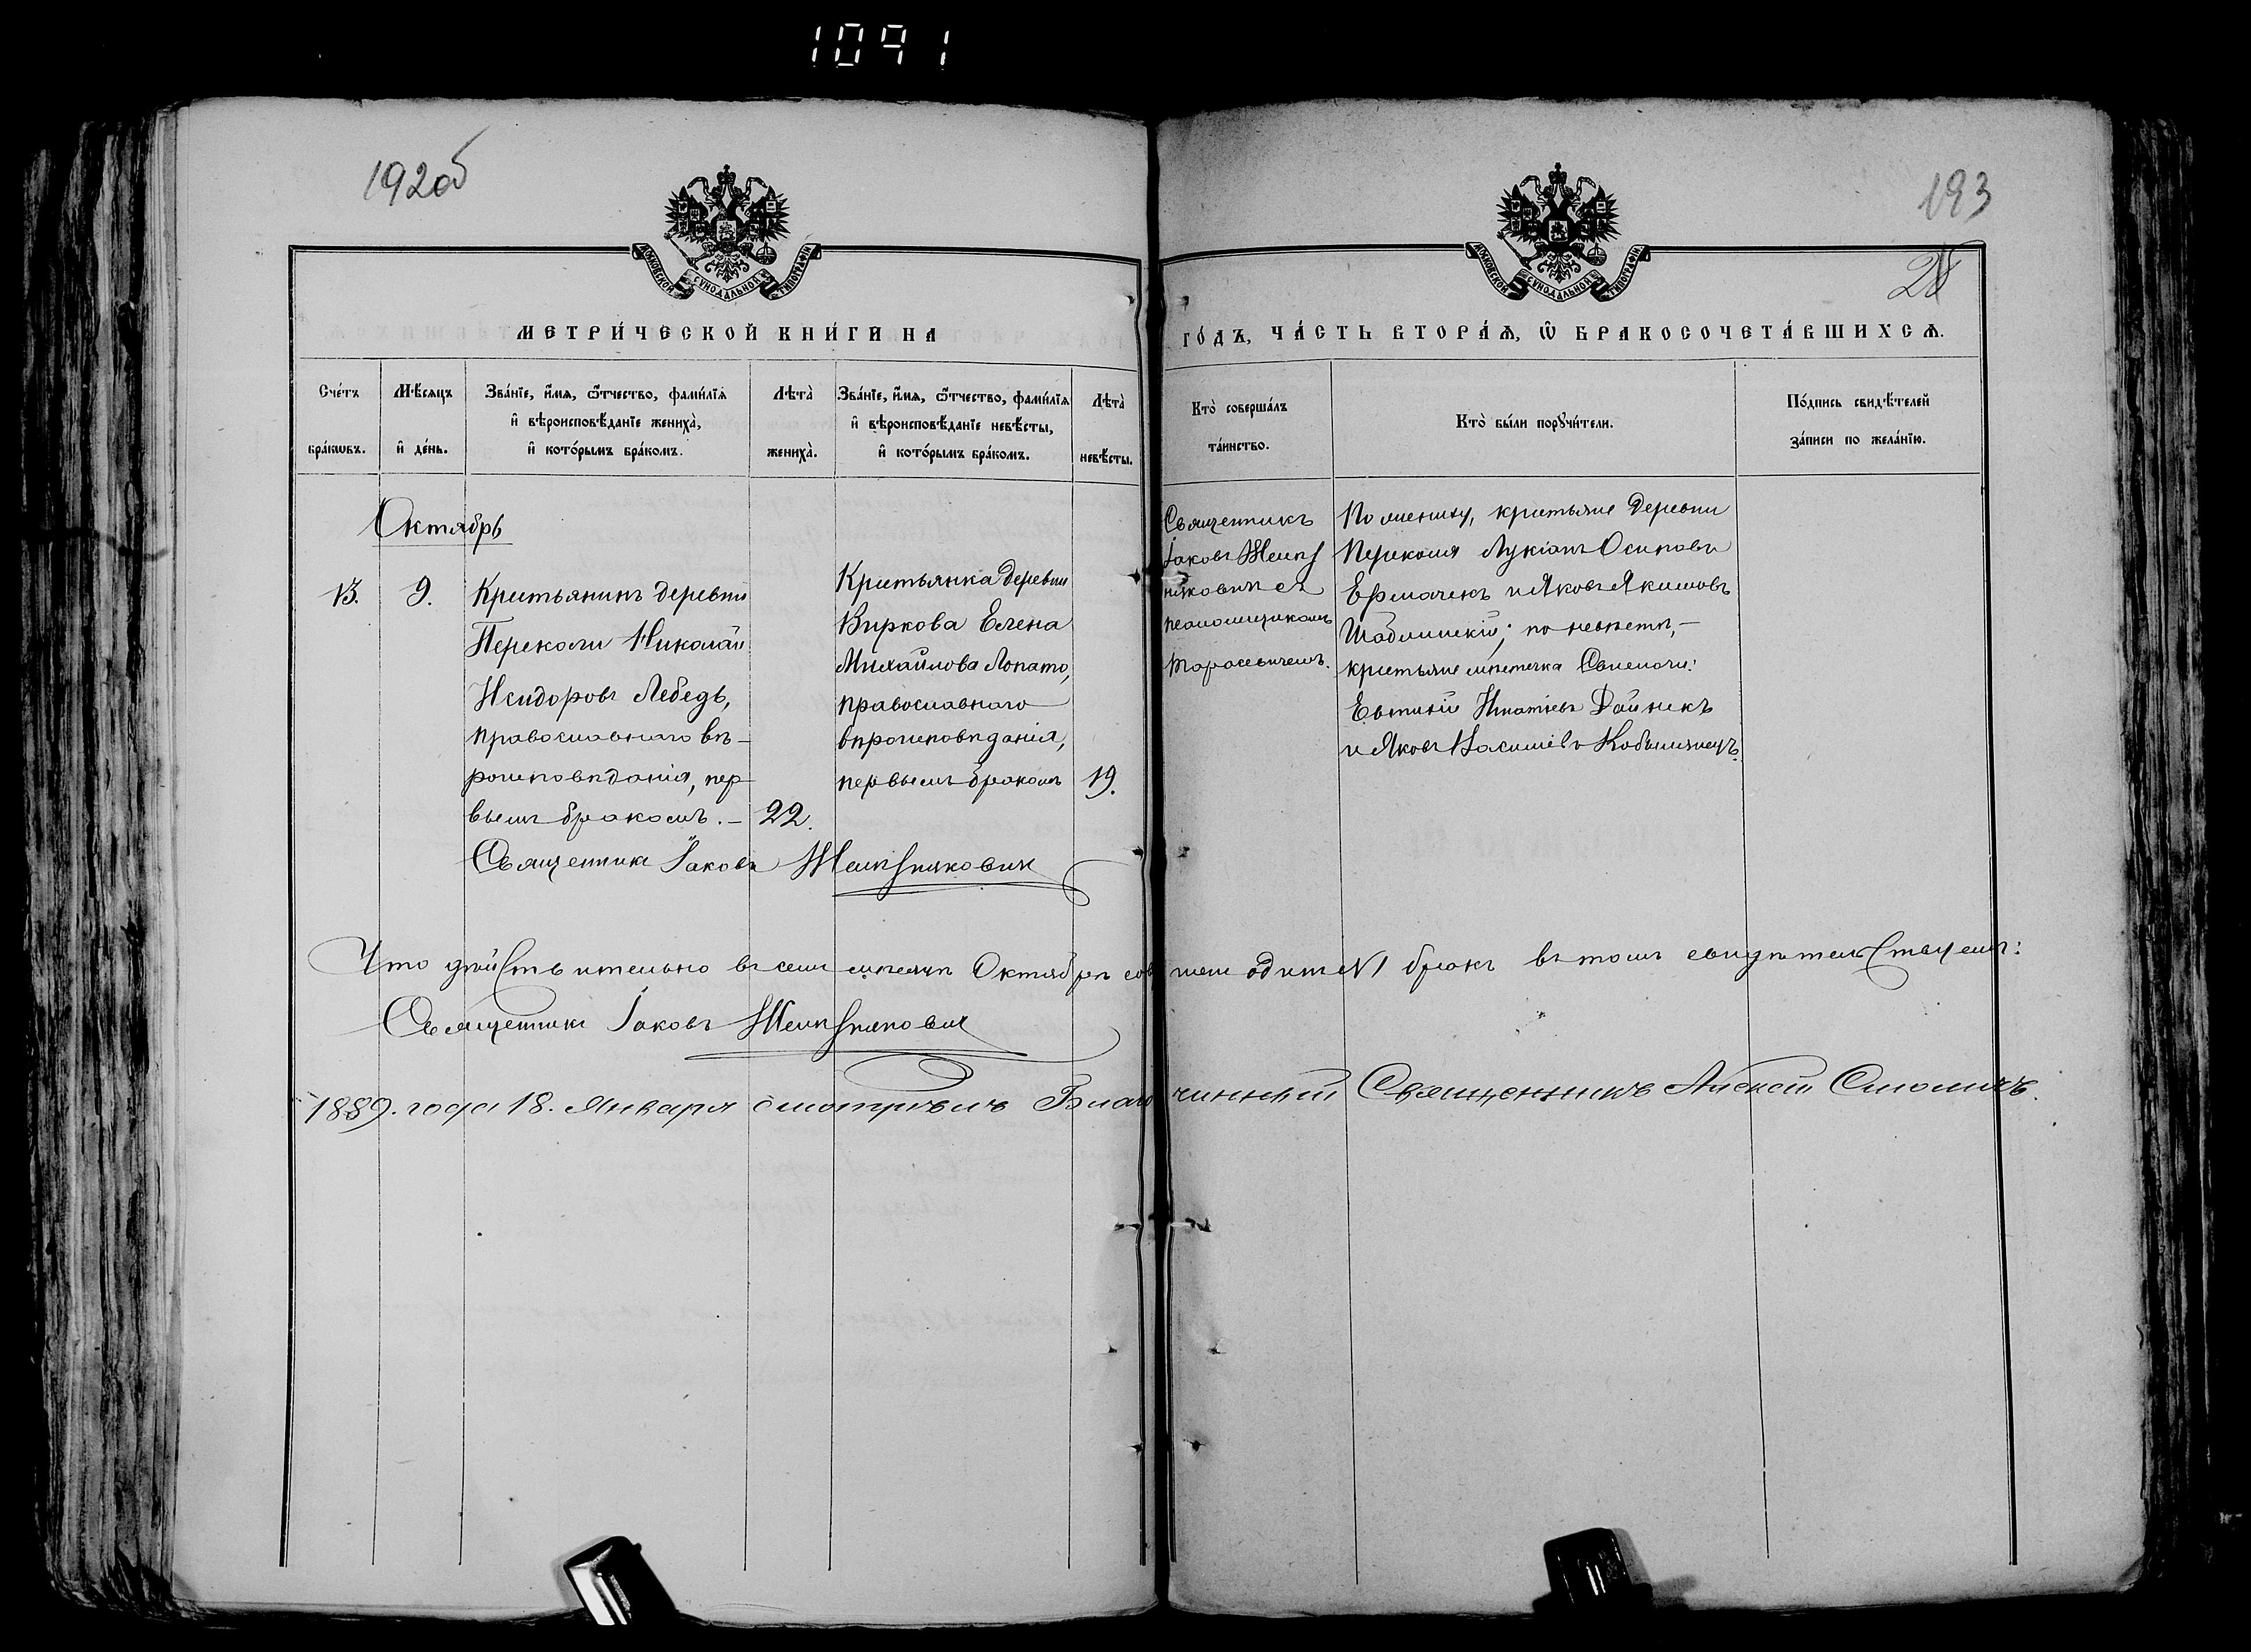 1091
192об
193
28
МОСКОВСКОЙ СѴНОДАЛЬНОЙ ТИПОГРАФІИ
МОСКОВСКОЙ СѴНОДАЛЬНОЙ ТИПОГРАФІИ
МЕТРИ́ЧЕСКОЙ КНИ́ГИ НА
ГО́ДЪ, ЧА́СТЬ ВТОРА́Ѧ, Ѿ БРАКОСОЧЕТА́ВШИХСѦ.
Сче́тъ бра́кѡвъ.
Мѣ́сяцъ и҆ де́нь.
Зва́нїе, и҆́мя, ѻ҆́тчество, фами́лїя
и҆ вѣроисповѣ́данїе жениха̀,
и҆ кото́рымъ бра́комъ.
Лѣта̀ жениха̀.
Зва́нїе, и҆́мя, ѻ҆́тчество, фами́лїя
и҆ вѣроисповѣ́данїе невѣ́сты,
и҆ кото́рымъ бра́комъ.
Лѣта̀ невѣ́сты.
Кто̀ соверша́лъ
та́инство.
Кто̀ бы́ли порꙋчи́тели.
По́дпись свидѣ́телей
за́писи по жела́нїю.
Октябрь
13.
9.
Крестьянинъ деревни
Перекоми Николай
Исидоровъ Лебедь,
православнаго вѣ-
роисповѣданія, пер-
вымъ бракомъ.-
22.
Крестьянка деревни
Виркова Елена
Михайлова Лопато,
православнаго
вѣроисповѣданія,
первымъ бракомъ
19.
Священникъ
Іаковъ
съ
псаломщикомъ
Тарасевичемъ.
По жениху, крестьяне деревни
Лукіанъ Осиповъ
Ермачекъ и Яковъ Якимовъ
по невѣстѣ,-
крестьяне мѣстечка
Евтихій Игнатіевъ
и Яковъ
Священникъ Іаковъ
Что дѣйствительно въ семъ мѣсяцѣ Октябрѣ одинъ №1 бракъ въ томъ свидѣтельствуемъ:
Священникъ Іаковъ
1889. года 18. Января смотрѣлъ Благочинный Священникъ Алексій Смоличъ.